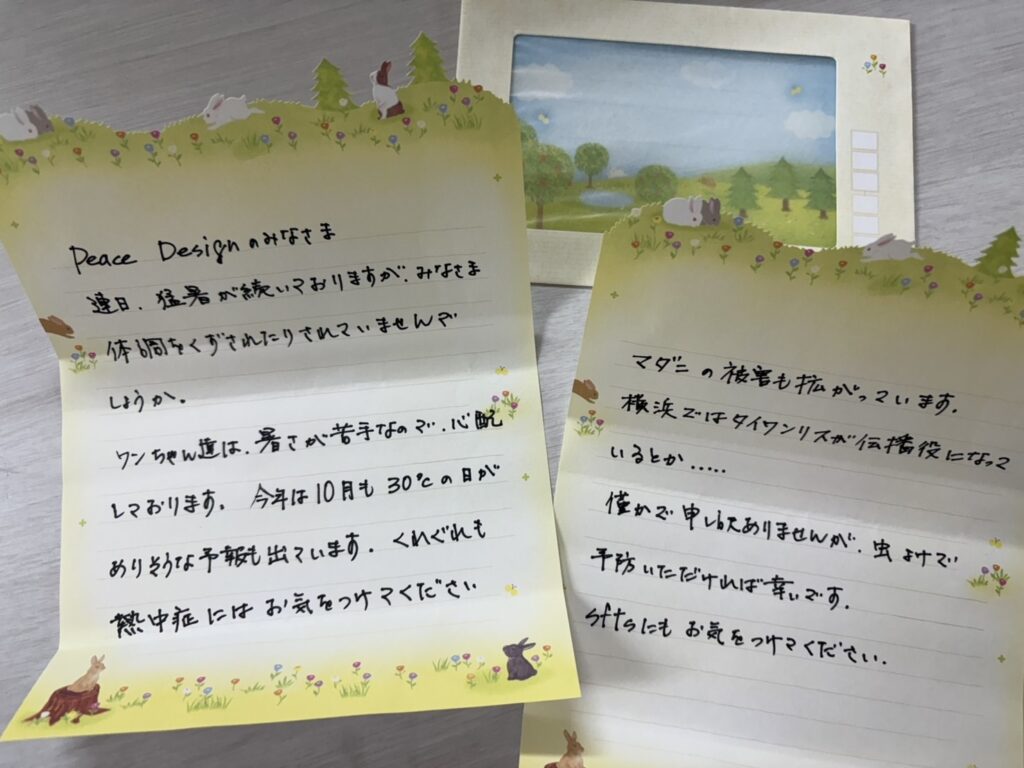 Peace Designのみなさま
連日、猛暑が続いておりますが、みなさま
体調をくずされたりされていませんで
しょうか。
ワンちゃん達は、暑さが苦手なので、心配
しております。今年は10月も30℃の日が
ありそうな予報も出ています。くれぐれも
熱中症にはお気をつけてください
マダニの被害も拡がっています。
横浜ではタイワンリスが伝播役になって
いるとか.....
僅かで申し訳ありませんが、虫よけで
予防いただければ幸いです。
sftsにもお気をつけてください。